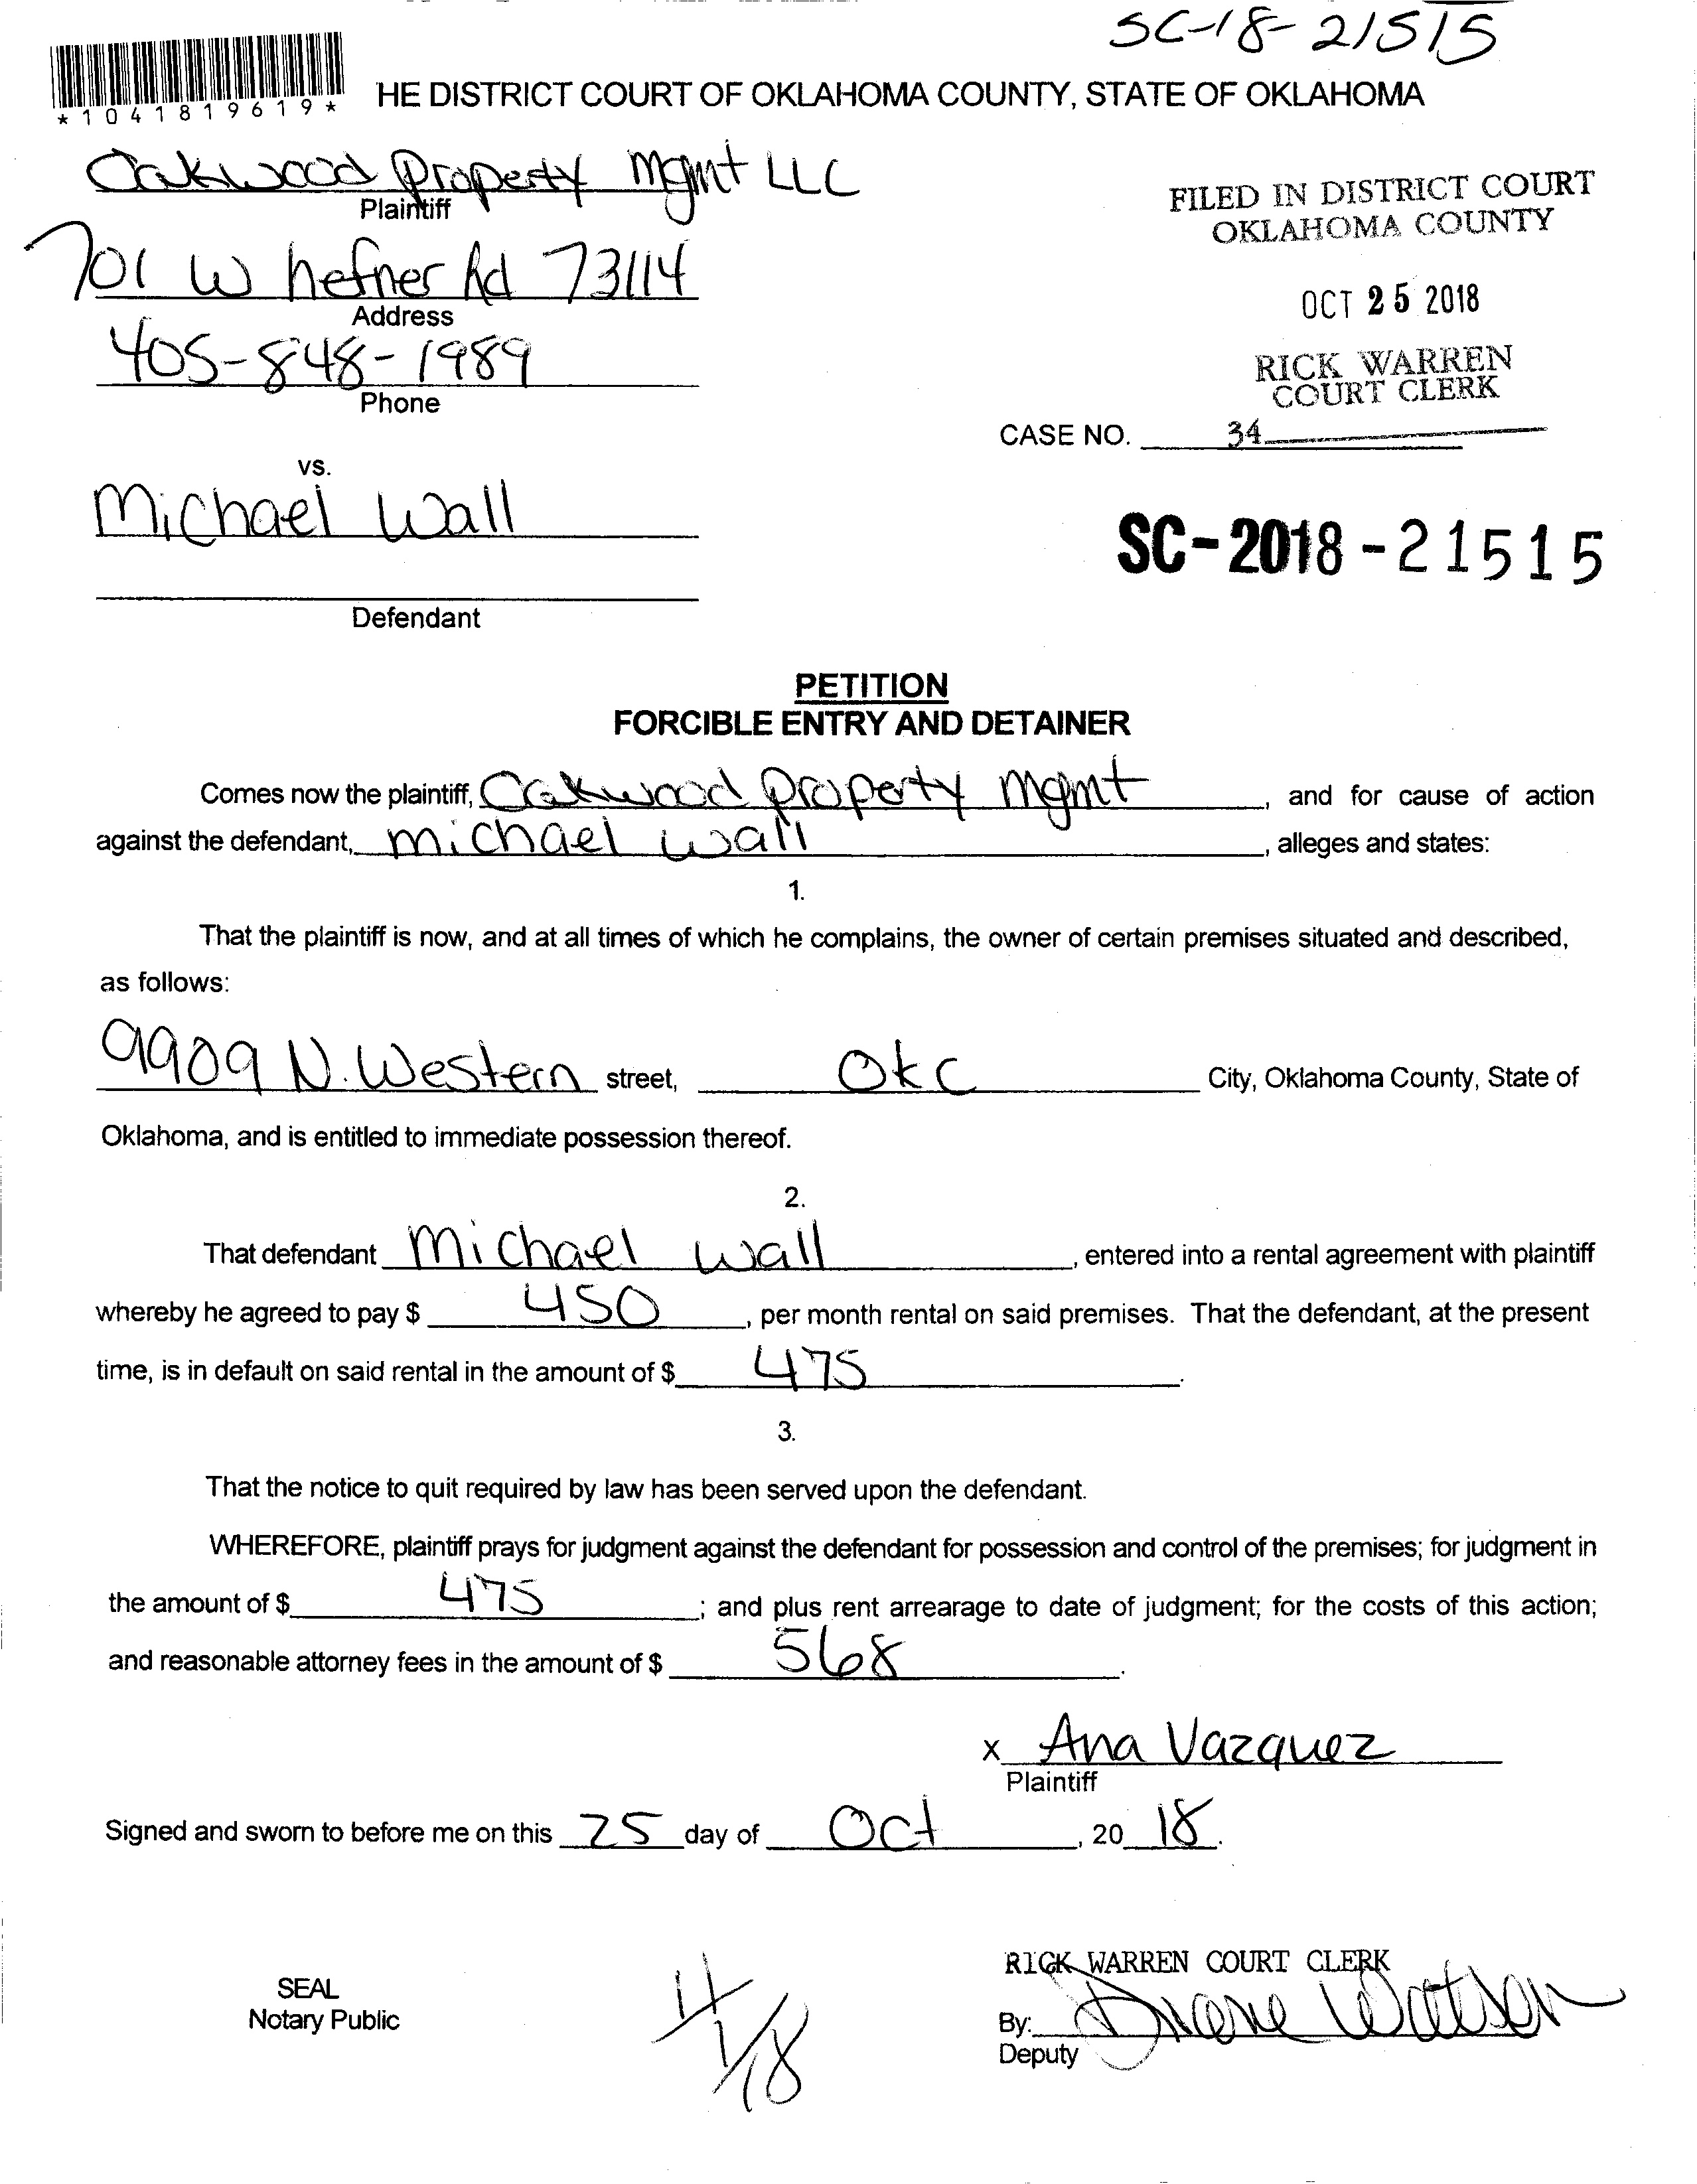 SC-18-21515
*1041819619*
HE DISTRICT COURT OF OKLAHOMA COUNTY, STATE OF OKLAHOMA
Oakwood Property Mgmt LLC
Plaintiff
FILED IN DISTRICT COURT
OKLAHOMA COUNTY
701 W hefner Rd 73114
Address
OCT 25 2018
405-848-1989
Phone
RICK WARREN
COURT CLERK
CASE NO. 34
vs.
Michael Wall
SC-2018-21515
Defendant
PETITION
FORCIBLE ENTRY AND DETAINER
Comes now the plaintiff, Oakwood Property Mgmt, and for cause of action
against the defendant, Michael Wall, alleges and states:
1.
That the plaintiff is now, and at all times of which he complains, the owner of certain premises situated and described,
as follows:
9909 N. Western street, OKC City, Oklahoma County, State of
Oklahoma, and is entitled to immediate possession thereof.
2.
That defendant Michael Wall, entered into a rental agreement with plaintiff
whereby he agreed to pay $ 450, per month rental on said premises. That the defendant, at the present
time, is in default on said rental in the amount of $ 475.
3.
That the notice to quit required by law has been served upon the defendant.
WHEREFORE, plaintiff prays for judgment against the defendant for possession and control of the premises; for judgment in
the amount of $ 475; and plus rent arrearage to date of judgment; for the costs of this action;
and reasonable attorney fees in the amount of $ 568.
x Ana Vazquez
Plaintiff
Signed and sworn to before me on this 25 day of Oct, 20 18.
RICK WARREN COURT CLERK
SEAL
Notary Public
11/1/18
By: Diane Watson
Deputy